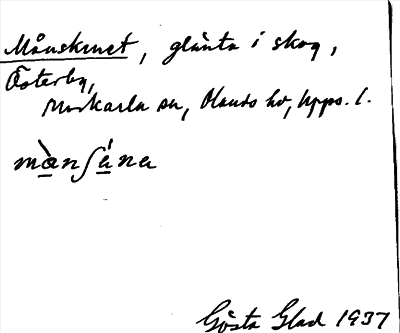 Månskenet, glänta i skog,
Österby,
Morkarla sn, Olands hd, Upps. l.
mànʃána
Gösta Glad 1937